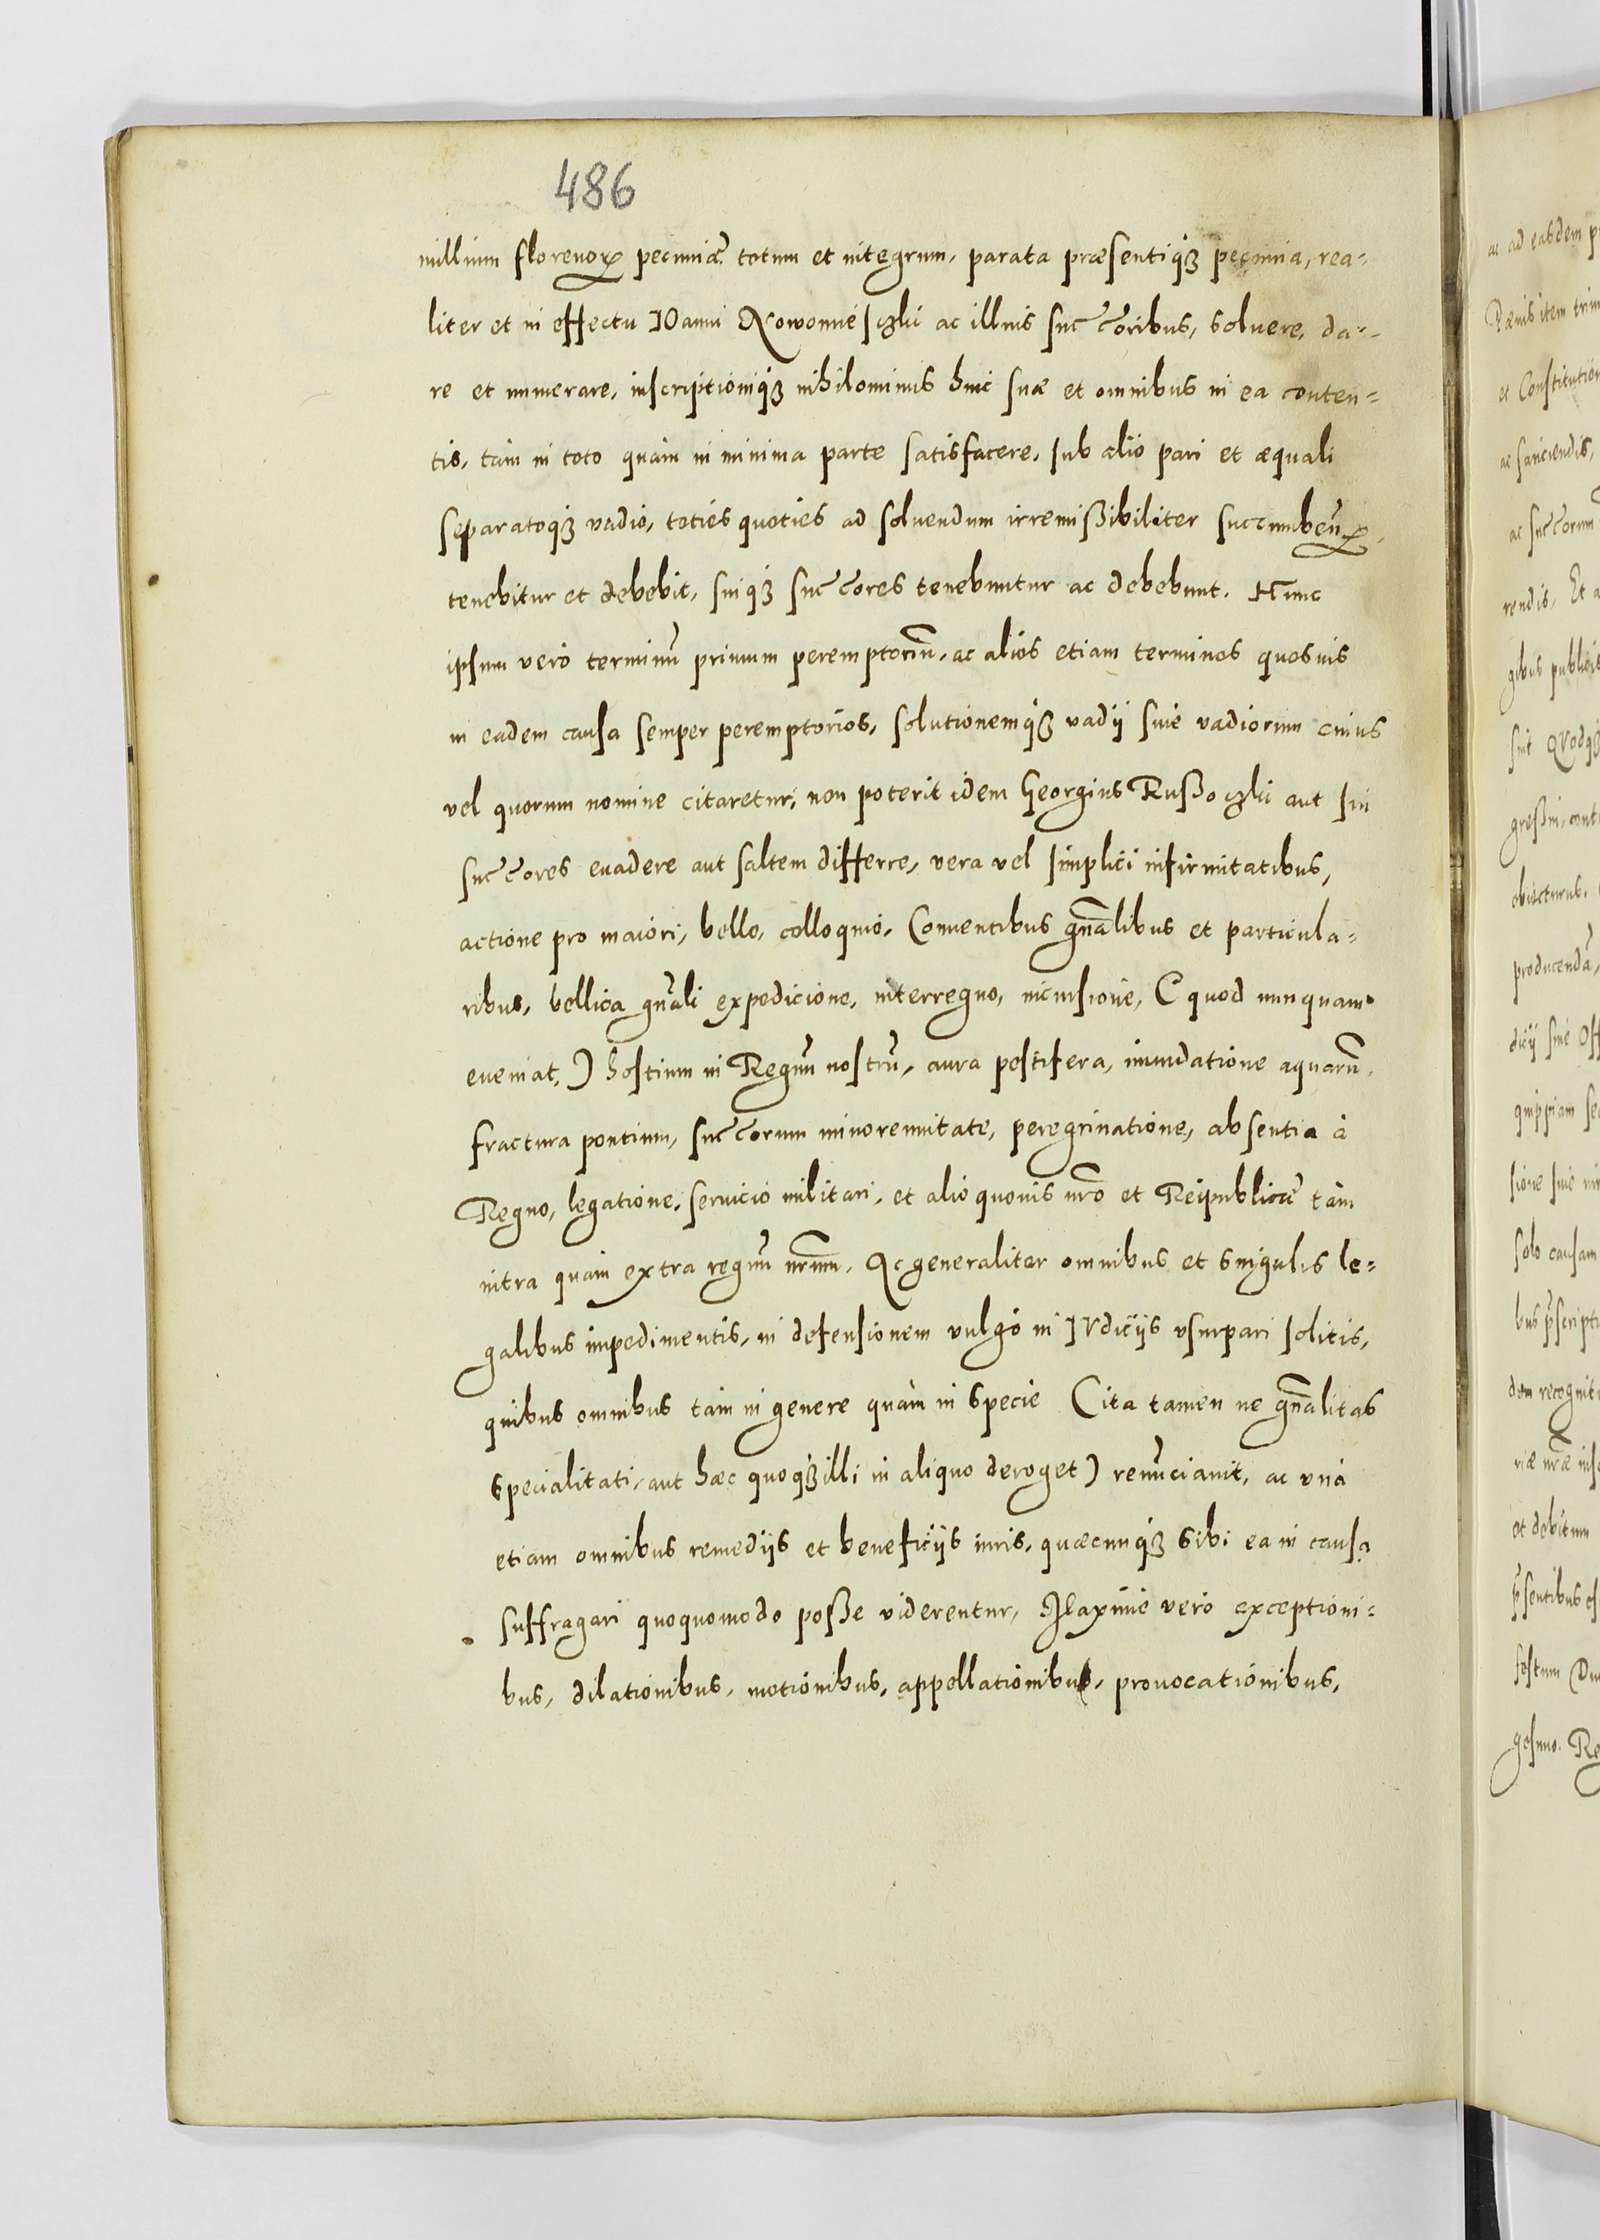 486
millium florenoꝝ pecuniæ totum et integrum, parata præsentiqꝫ pecunia, rea-
liter et in effectu IOanni Nowomieiſczki ac illius ſucc͠oribus, soluere, da-
re et numerare, inſcriptioniqꝫ nihilominus huic ſuæ et omnibus in ea conten-
tis, tàm in toto quàm in minima parte ſatisfacere, ſub alio pari et æquali
separatoqꝫ vadio, toties quoties ad ſoluendum irremiſſibiliter ſuccumben̄
tenebitur et debebit, ſuiqꝫ ſucc͠ores tenebuntur ac debebunt. Hunc
ipſum vero terminū primum peremptoriū, ac alios etiam terminos quosuis
in eadem cauſa ſemper peremptorios, ſolutionemqꝫ vadij ſiue vadiorum cuius
vel quorum nomine citaretur, non poterit idem Georgius Ruſſoczki aut ſui
ſucc͠ores euadere aut ſaltem differre, vera vel ſimplici infirmitatibus,
actione pro maiori, bello, colloquio, Conuentibus gn͞alibus et particula-
ribus, bellica gn͞ali expedicione, interregno, incurſione, ( quod nunquam
eueniat, ) hostium in Regnū nostrū, aura pestifera, inundatione aquarū,
fractura pontium, ſucc͠orum minorennitate, peregrinatione, abſentia à
Regno, legatione, ſeruicio militari, et alio quouis nr͞o et Reipublicæ tàm
intra quàm extra regnū nr͞um, Ac generaliter omnibus et singulis le-
galibus impedimentis, in defenſionem vulgò in IUdicijs vſurpari ſolitis,
quibus omnibus tàm in genere quàm in specie (ita tamen ne gn͞alitas
specialitati, aut hæc quoqꝫ illi in aliquo deroget) renūciauit, ac vnà
etiam omnibus remedijs et beneficijs iuris, quæcunqꝫ sibi ea in cauſa
ſuffragari quoquomodo poſſe viderentur, Maxime verò exceptioni-
bus, dilationibus, motionibus, appellationibus, prouocationibus,
ac ad easdem
item
et Constitution
ac ſanciendis,
ac ſucc͠orum
rendis, Et a
gibus publicis
ſit QVodqꝫ
greſſui, cont
obiecturus.
producendā,
dicij ſiue Off
quippiam
ſione ſiue
ſolo cauſam
bus p̄ſcript
dem recognit
riæ nr͞æ
et debitum
p̄ſentibus
festum
geſimo. Re